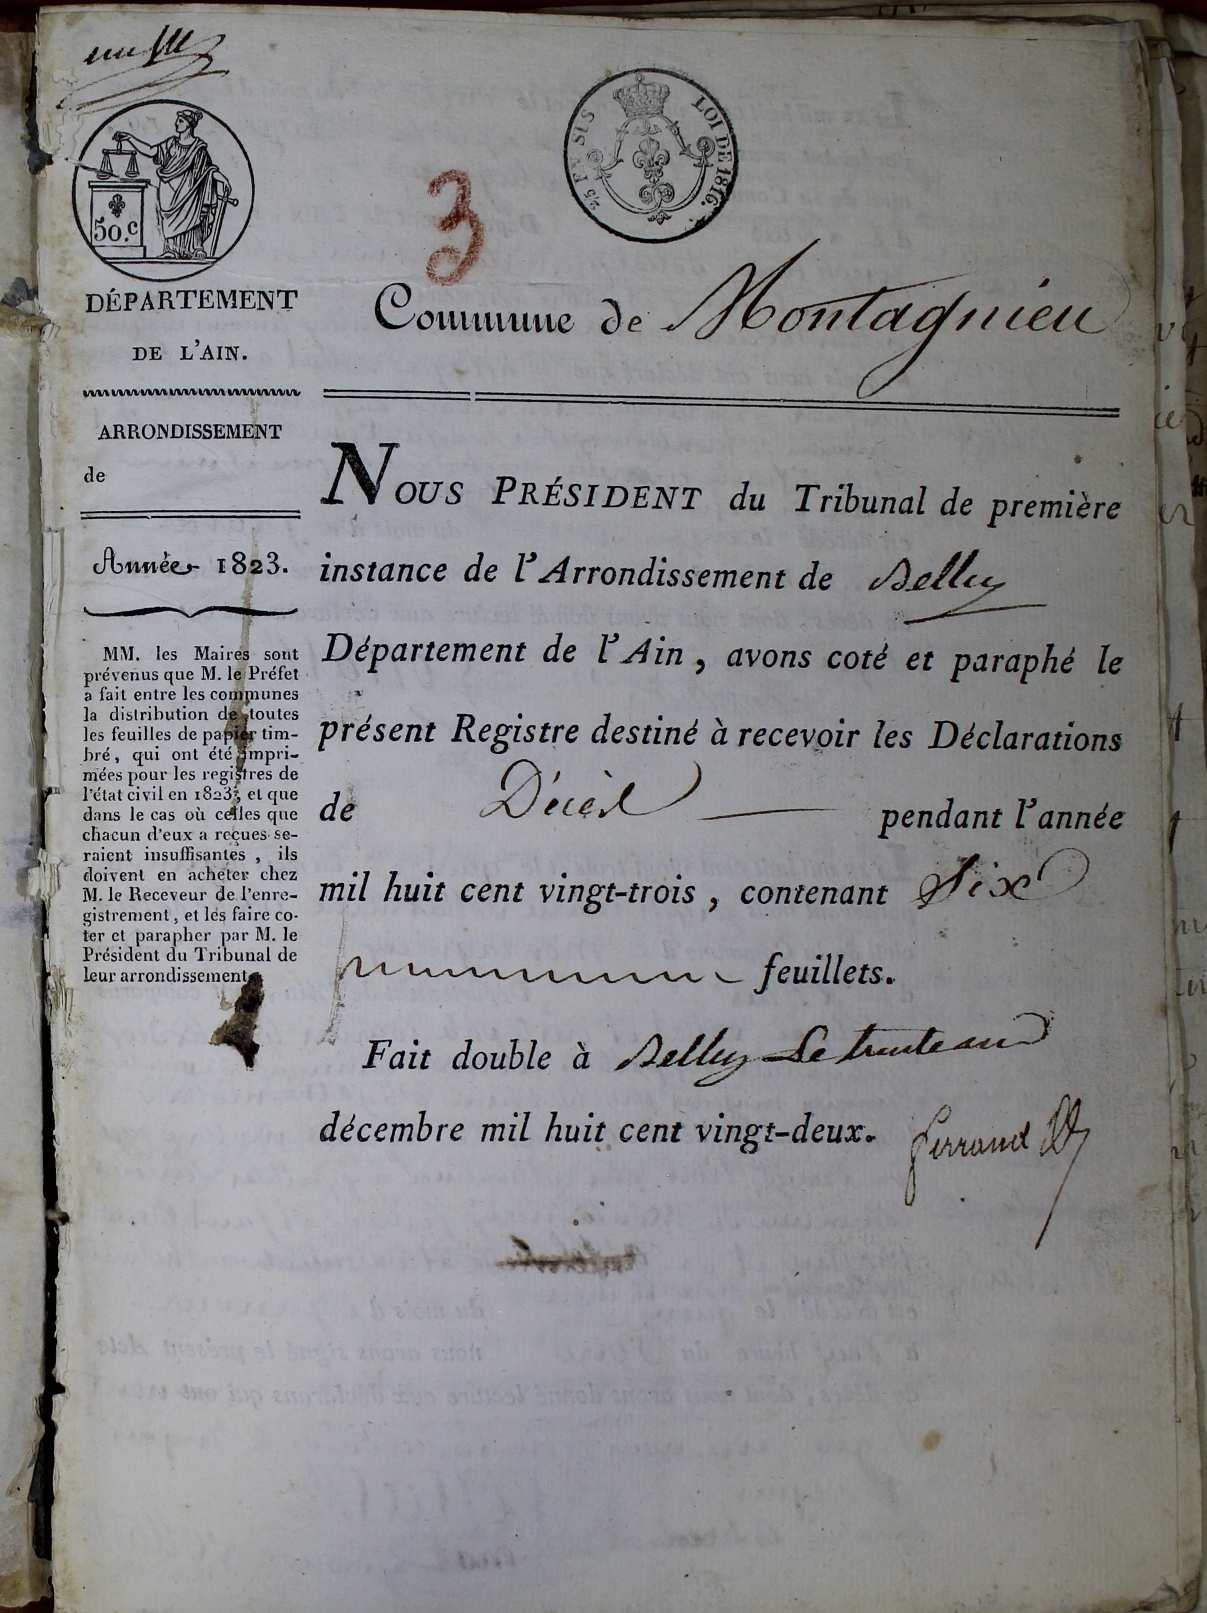 50.c
25 EN SUS
LOI DE 1816.
3
DÉPARTEMENT
DE L'AIN.
ARRONDISSEMENT
de
Année 1823.
MM. les Maires sont
prévenus que M. le Préfet
a fait entre les communes
la distribution de toutes
les feuilles de papier tim-
bré, qui ont été impri-
mées pour les registres de
l'état civil en 1823, et que
dans le cas où celles que
chacun d'eux a reçues se-
raient insuffisantes, ils
doivent en acheter chez
M. le Receveur de l'enre-
gistrement, et les faire co-
ter et parapher par M. le
Président du Tribunal de
leur arrondissement.
Commune de Montagnieu
NOUS PRÉSIDENT du Tribunal de première
instance de l'Arrondissement de Belley
Département de l'Ain, avons coté et paraphé le
présent Registre destiné à recevoir les Déclarations
de Décès pendant l'année
mil huit cent vingt-trois, contenant Six
feuillets.
Fait double à Belley Le trente un
décembre mil huit cent vingt-deux.